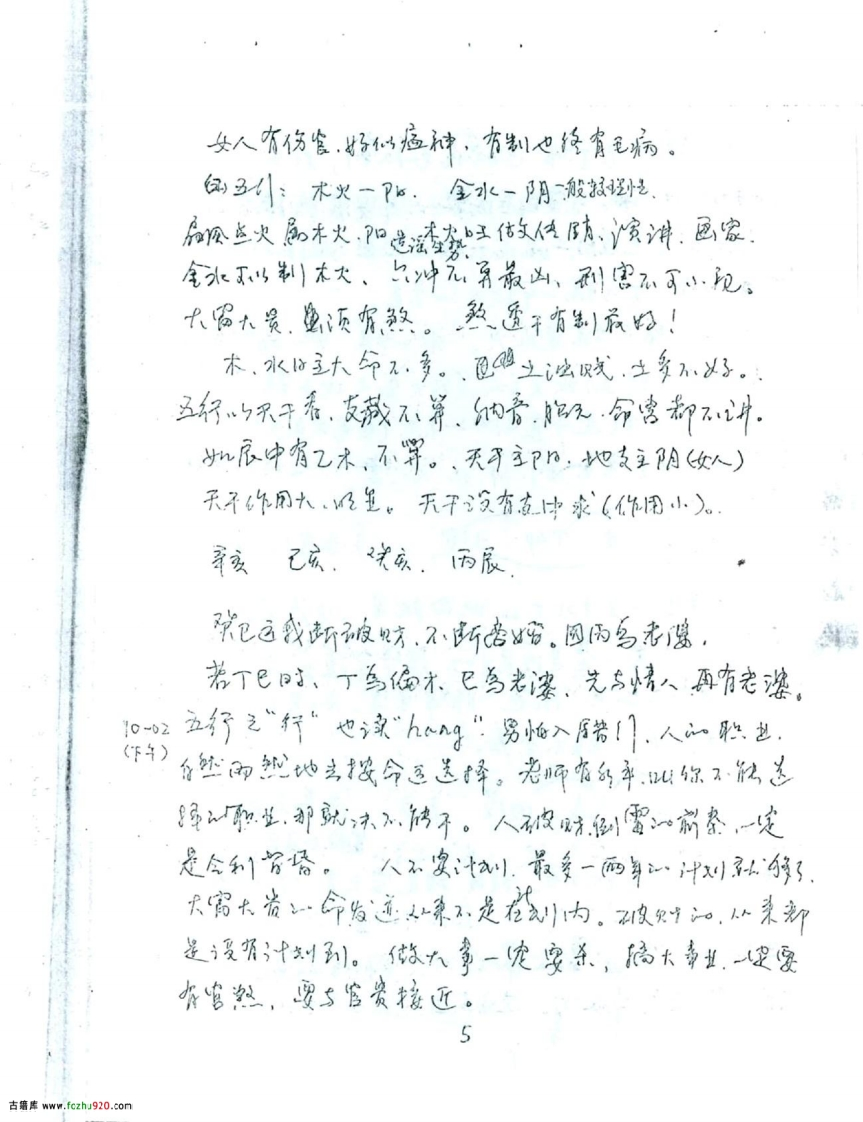 女人有伤官、好似瘟神，有制也终有毛病。
五行：木火一阳、金水一阴 一般按理性
扇风点火属木火、阳 造谣生势、木火日主做文作销、演讲、画家、
金水可以制木火、六冲不算最凶、刑害不可小视。
大富大贵、必须有煞。煞透干有制最好！
木、水日主大命不多。因 土浊贱、土多不好。
五行以天干看、支藏不算、纳音、胎元、命宫都不讲。
如辰中有乙木、不算。天干主阳、地支主阴（女人）
天干作用大、明显。天干没有支中求（作用小）。
辛亥 己亥、癸亥、丙辰、
癸巳运我断破财、不断离婚。因丙为老婆，
若丁巳时、丁为偏才、巳为老婆、先与情人再有老婆。
10-02
（下午）
五行之“行”也读“hang”。男怕入错行、人的职业、
自然而然地去按命运选择。老师有所章，叫你不能选
择的职业，那就决不能干。人破财、倒霉的前奏，一定
是令利智昏。 人不要计划、最多一两年的计划就够了、
大富大贵的命发迹从来不是在计划内。破财的、从来都
是没有计划到。做大事一定要杀，搞大事业、一定要
有官煞、要与官贵接近。
5
古籍库 www.fczhu920.com